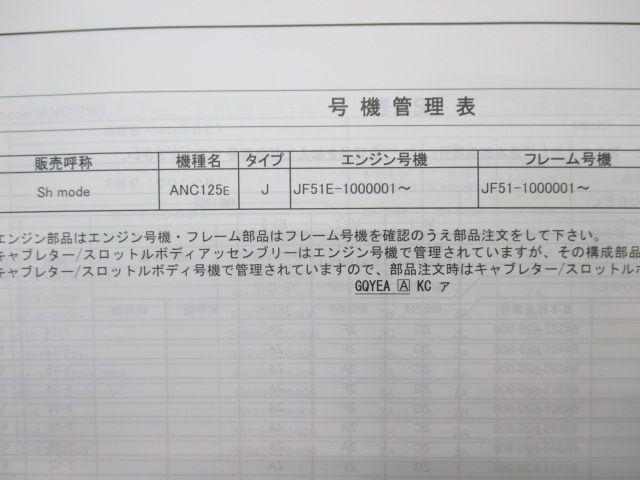 号機管理表
販売呼称 機種名 タイプ エンジン号機 フレーム号機
Sh mode ANC125E J JF51E-1000001～ JF51-1000001～
エンジン部品はエンジン号機・フレーム部品はフレーム号機を確認のうえ部品注文をして下さい。
キャブレター/スロットルボディアッセンブリーはエンジン号機で管理されていますが、その構成部品
キャブレター/スロットルボディ号機で管理されていますので、部品注文時はキャブレター/スロットルボ
GQYEA A KC ア